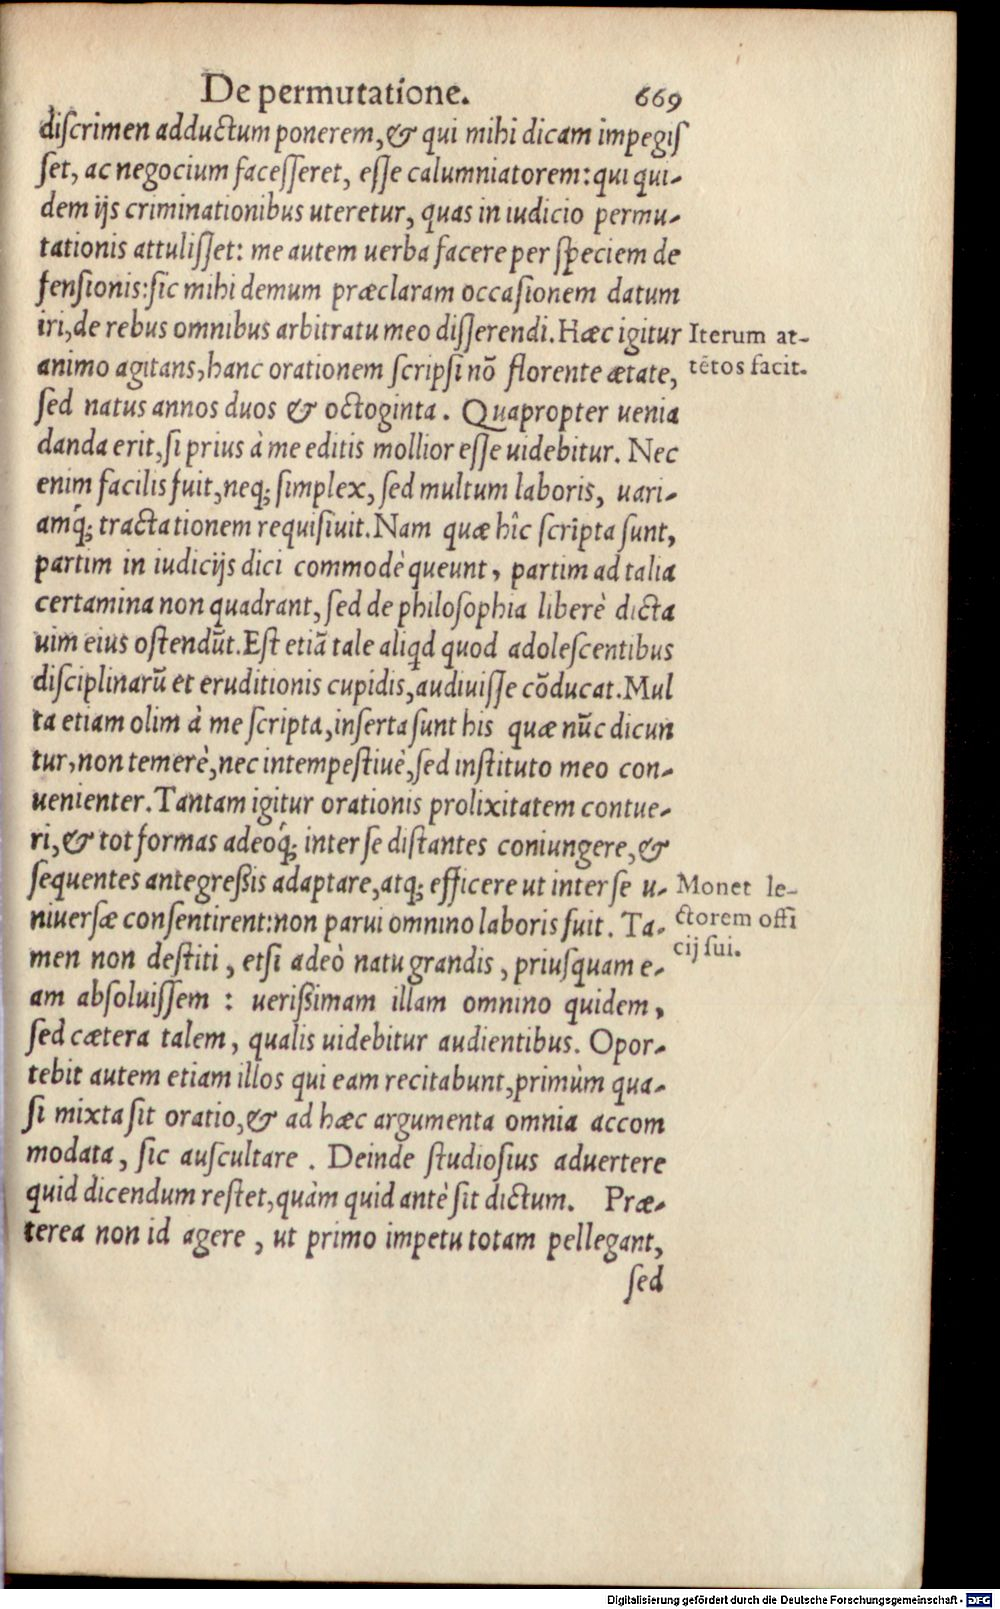 De permutatione. 669
discrimen adductum ponerem, & qui mihi dicam impegis
set, ac negocium facesseret, esse calumniatorem: qui qui-
dem ijs criminationibus uteretur, quas in iudicio permu-
tationis attulisset: me autem uerba facere per speciem de
fensionis: sic mihi demum præclaram occasionem datum
iri, de rebus omnibus arbitratu meo disserendi. Hæc igitur
Iterum at-
animo agitans, hanc orationem scripsi nõ florente ætate,
tẽtos facit.
sed natus annos duos & octoginta. Quapropter uenia
danda erit, si prius à me editis mollior esse uidebitur. Nec
enim facilis fuit, neq; simplex, sed multum laboris, uari-
amq́; tractationem requisiuit. Nam quæ hîc scripta sunt,
partim in iudicijs dici commodè queunt, partim ad talia
certamina non quadrant, sed de philosophia liberè dicta
uim eius ostendũt. Est etiã tale aliqd quod adolescentibus
disciplinarũ et eruditionis cupidis, audiuisse cõducat. Mul
ta etiam olim à me scripta, inserta sunt his quæ nũc dicun
tur, non temerè, nec intempestiuè, sed instituto meo con-
uenienter. Tantam igitur orationis prolixitatem contue-
ri, & tot formas adeoq́; inter se distantes coniungere, &
sequentes antegreßis adaptare, atq; efficere ut inter se u-
Monet le-
niuersæ consentirent: non parui omnino laboris fuit. Ta-
ctorem offi
cij sui.
men non destiti, etsi adeò natu grandis, priusquam e-
am absoluissem: uerißimam illam omnino quidem,
sed cætera talem, qualis uidebitur audientibus. Opor-
tebit autem etiam illos qui eam recitabunt, primùm qua-
si mixta sit oratio, & ad hæc argumenta omnia accom
modata, sic auscultare. Deinde studiosius aduertere
quid dicendum restet, quàm quid antè sit dictum. Præ-
terea non id agere, ut primo impetu totam pellegant,
sed
Digitalisierung gefördert durch die Deutsche Forschungsgemeinschaft - DFG